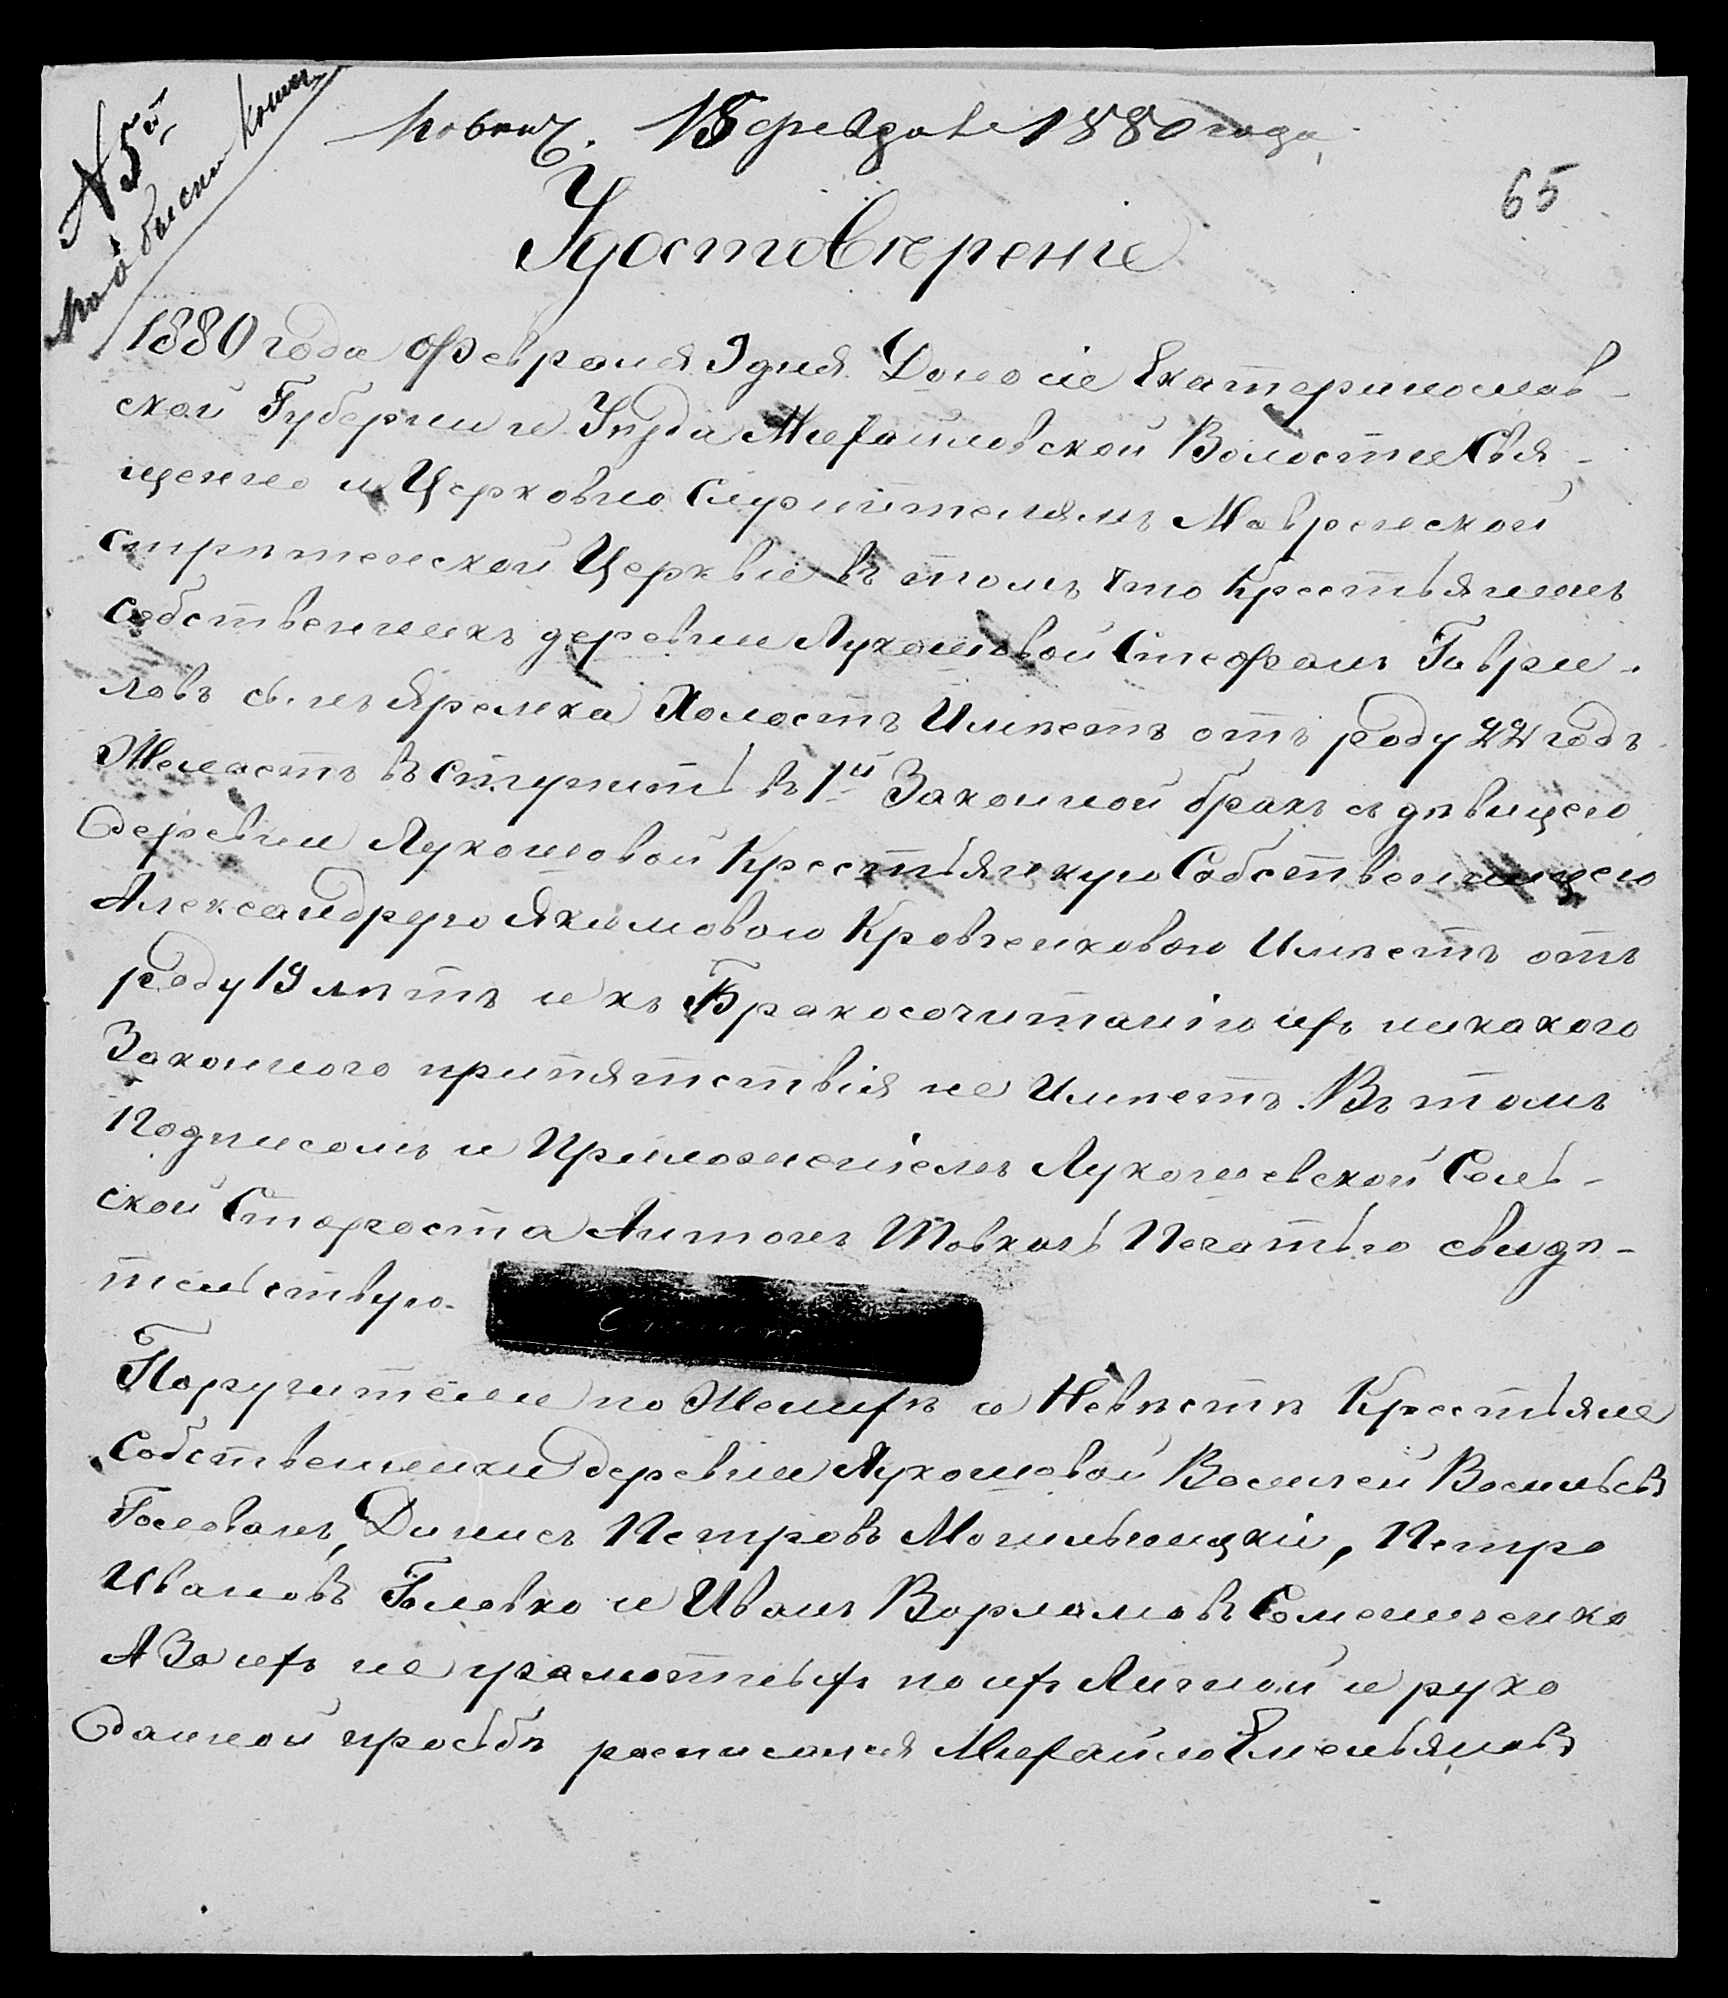 № 5й,
под обыском
15 февраля 1880 года
65
Удостовѣрение
1880 года Февраля 9 дня Дано сие Екатеринослав-
ской Губернии и Уѣзда Михайловской Волости Свя-
щенно и Церковно Служителямъ
Стрѣтенской Церкви въ томъ что Крестьянинъ
Собственникъ деревни Лукашовой Стефанъ Гаври-
ловъ сынъ Яремка Холостъ Имѣетъ отъ роду 22 годъ
Желаетъ вступить въ 1й Законной бракъ съ дѣвицею
деревни Лукашовой Крестьянкую Собственницею
Александрую Якимовою Кравченковою Имѣетъ отъ
роду 19 лѣтъ и къ Бракосочитанію ихъ никакого
Законного припятствія не Имѣетъ. Въ томъ
Подписомъ и Приложениемъ Лукашевской Сель-
ской Староста Антонъ Товкачь Печатью свидѣ-
тельствую.
Поручители по Женихѣ и Невѣстѣ Крестьяне
Собственники деревни Лукашовой Василей Васильевъ
Головань, Динисъ Петровъ Могильницкій, Петро
Ивановъ Головко и Иванъ Варламовъ Семенченко
А За ихъ не грамотныхъ по ихъ Личной и руко
данной просьбѣ росписался Михайло Емельяновъ